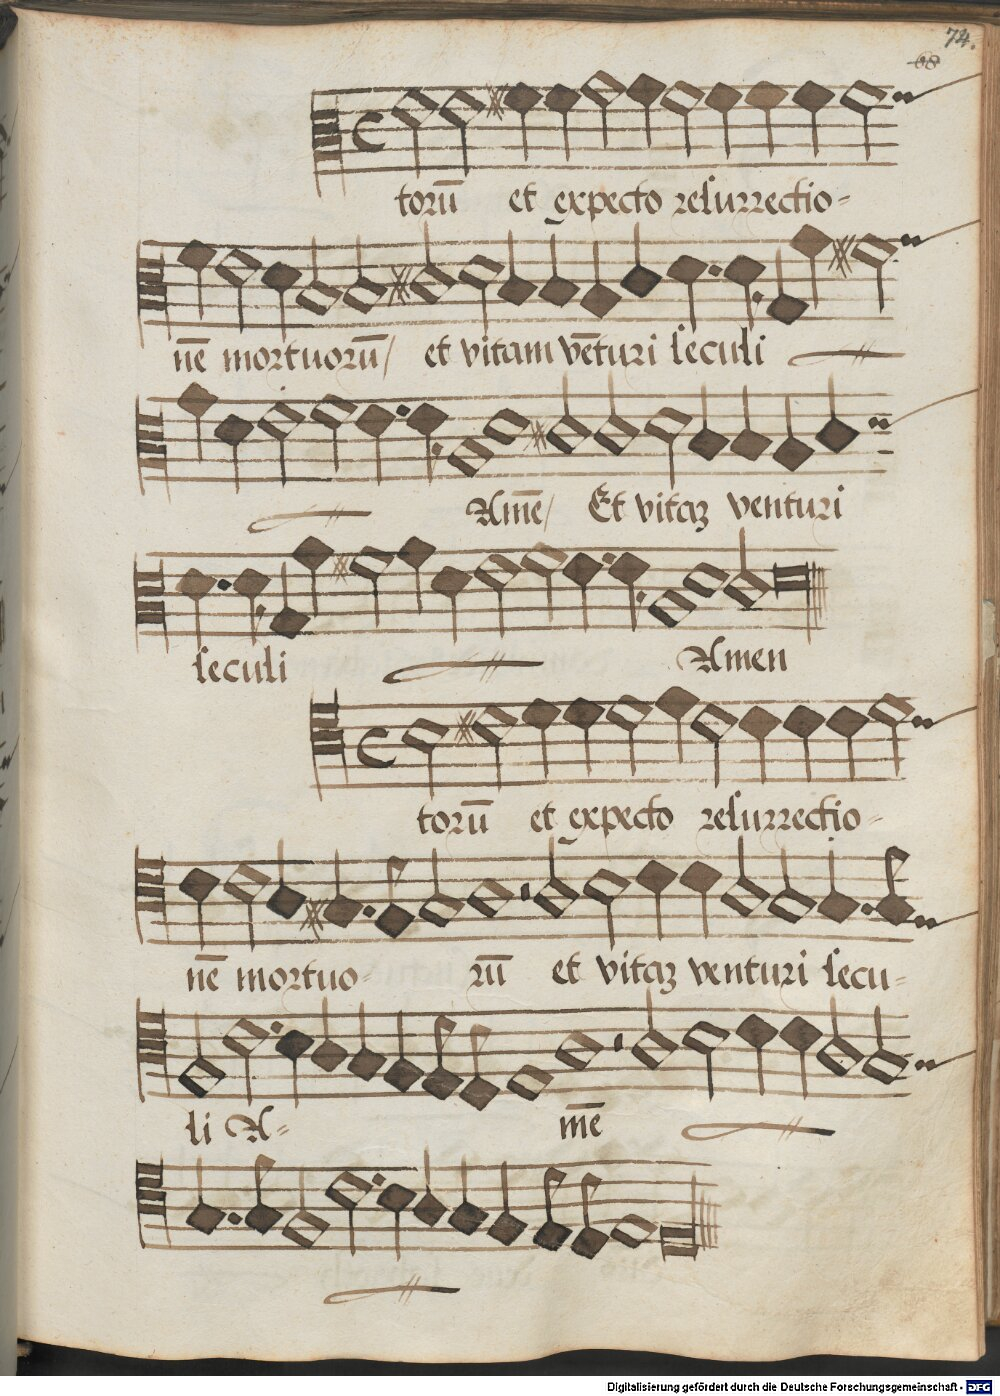 74.
68
torū et expecto resurrectio-
nē mortuorū/ et vitam vēturi seculi
Amē/ Et vitaʒ venturi
seculi Amen
torū et expecto resurrectio-
nē mortuo- rū et vitaʒ venturi secu-
li A- mē
Digitalisierung gefördert durch die Deutsche Forschungsgemeinschaft - DFG